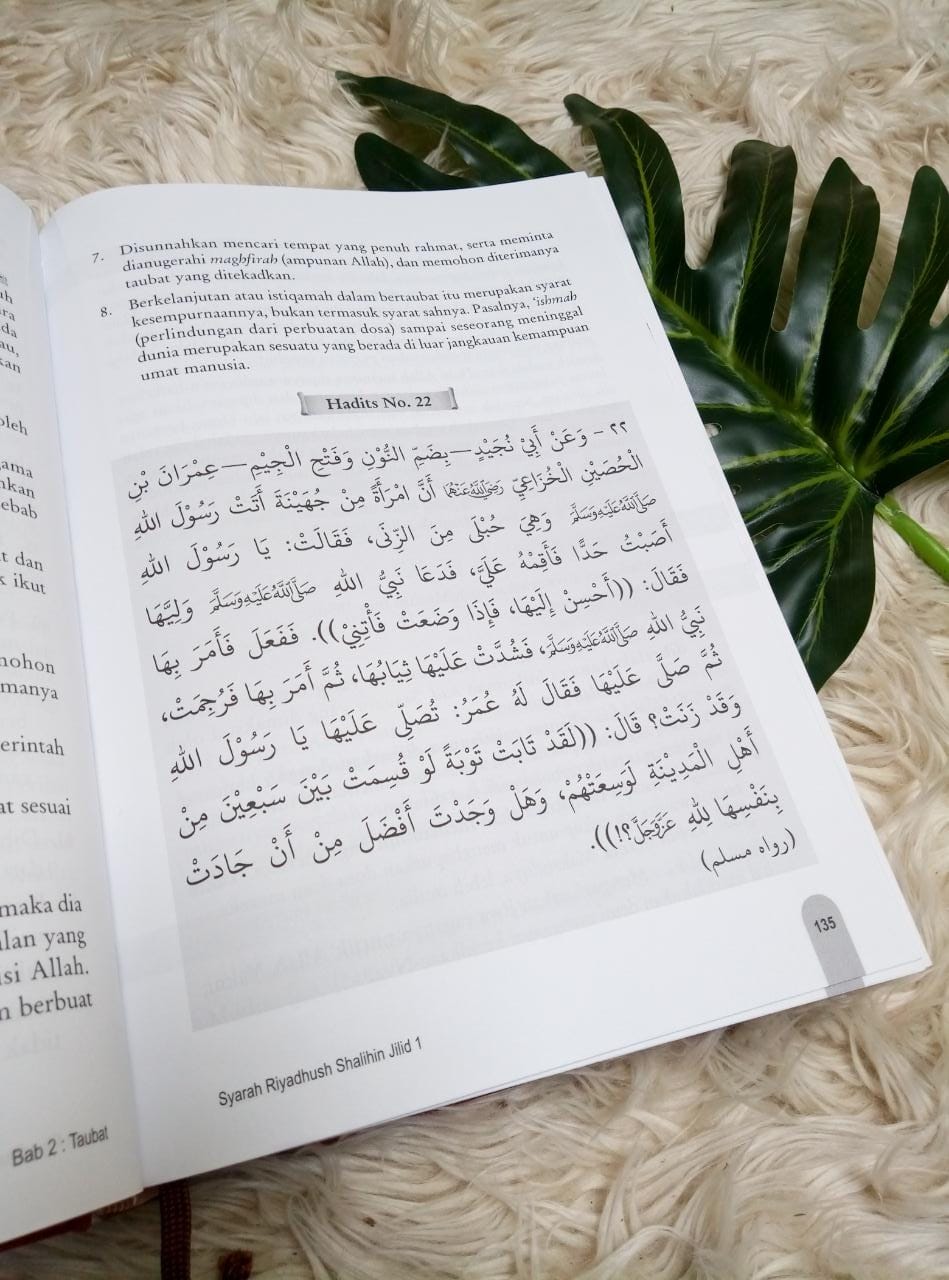 uh
ara
da
au,
kan
oleh
gama
hkan
ebab
t dan
k ikut
nohon
manya
erintah
at sesuai
maka dia
alan yang
si Allah.
n berbuat
Bab 2 : Taubat
7. Disunnahkan mencari tempat yang penuh rahmat, serta meminta
dianugerahi maghfirah (ampunan Allah), dan memohon diterimanya
taubat yang ditekadkan.
8. Berkelanjutan atau istiqamah dalam bertaubat itu merupakan syarat
kesempurnaannya, bukan termasuk syarat sahnya. Pasalnya, 'ishmah
(perlindungan dari perbuatan dosa) sampai seseorang meninggal
dunia merupakan sesuatu yang berada di luar jangkauan kemampuan
umat manusia.
Hadits No. 22
٢٢ – وَعَنْ أَبِيْ نُجَيْدٍ—بِضَمِّ النُّوْنِ وَفَتْحِ الْجِيْمِ—عِمْرَانَ بْنِ
الْحُصَيْنِ الْخُزَاعِيِّ رَضِيَ اللهُ عَنْهُمَا أَنَّ امْرَأَةً مِنْ جُهَيْنَةَ أَتَتْ رَسُوْلَ اللهِ
صَلَّى اللهُ عَلَيْهِ وَسَلَّمَ وَهِيَ حُبْلَى مِنَ الزِّنَى، فَقَالَتْ: يَا رَسُوْلَ اللهِ
أَصَبْتُ حَدًّا فَأَقِمْهُ عَلَيَّ، فَدَعَا نَبِيُّ اللهِ صَلَّى اللهُ عَلَيْهِ وَسَلَّمَ وَلِيَّهَا
فَقَالَ: ((أَحْسِنْ إِلَيْهَا، فَإِذَا وَضَعَتْ فَأْتِنِيْ)). فَفَعَلَ فَأَمَرَ بِهَا
نَبِيُّ اللهِ صَلَّى اللهُ عَلَيْهِ وَسَلَّمَ، فَشُدَّتْ عَلَيْهَا ثِيَابُهَا، ثُمَّ أَمَرَ بِهَا فَرُجِمَتْ،
ثُمَّ صَلَّى عَلَيْهَا فَقَالَ لَهُ عُمَرُ: تُصَلِّي عَلَيْهَا يَا رَسُوْلَ اللهِ
وَقَدْ زَنَتْ؟ قَالَ: ((لَقَدْ تَابَتْ تَوْبَةً لَوْ قُسِمَتْ بَيْنَ سَبْعِيْنَ مِنْ
أَهْلِ الْمَدِيْنَةِ لَوَسِعَتْهُمْ، وَهَلْ وَجَدْتَ أَفْضَلَ مِنْ أَنْ جَادَتْ
بِنَفْسِهَا لِلهِ عَزَّ وَجَلَّ؟!)).
(رواه مسلم)
135
Syarah Riyadhush Shalihin Jilid 1